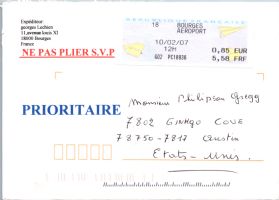 Expéditeur:
georges Lechien
11,avenue louis XI
18000 Bourges
France
NE PAS PLIER S.V.P
RÉPUBLIQUE FRANÇAISE
18 BOURGES
AÉROPORT
10/02/07
12H 0,85 EUR
G02 PC18030 5,58 FRF
PRIORITAIRE
Monsieur Philipson Gregg
7802 Ginkgo Cove
78750-7812 Austin
Etats-Unis